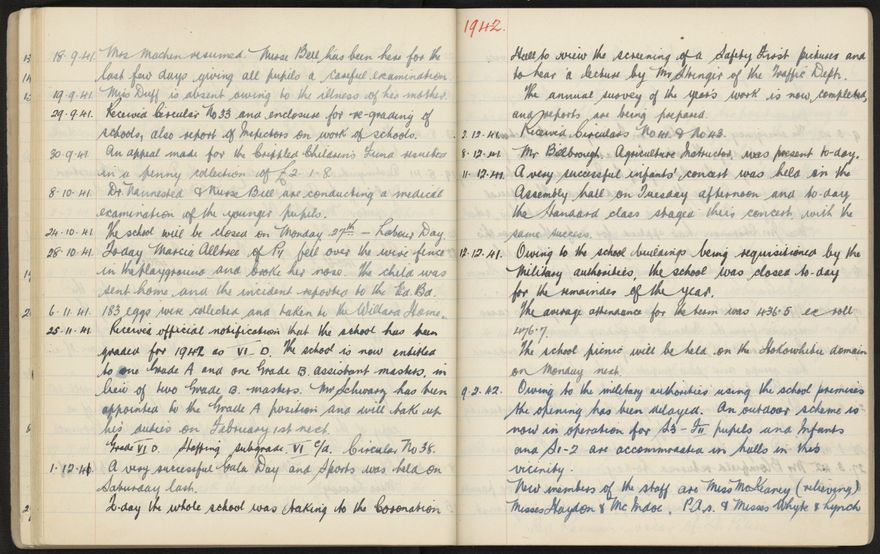 18·9·41. Mrs Machen resumed. Nurse Bell has been here for the
last few days giving all pupils a careful examination.
19·9·41. Miss Duff is absent owing to the illness of her mother.
29·9·41. Received Circular No 33 and enclosure for re-grading of
schools, also report of Inspectors on work of schools.
30·9·41. An appeal made for the Crippled Children's Fund resulted
in a penny collection of £2-1-8.
8·10·41. Dr. & Nurse Bell are conducting a medical
examination of the younger pupils.
24·10·41. The school will be closed on Monday 27th – Labour Day
28·10·41. To-day Marcia Alltree of P1 fell over the wire fence
in the playground and broke her nose. The child was
sent home and the incident reported to the Ed. Bd.
6·11·41. 183 eggs were collected and taken to the Willard Home.
25·11·41. Received official notification that the school has been
graded for 1942 as VI D. The school is now entitled
to one Grade A and one Grade B assistant masters, in
lieu of two Grade B masters. Mr Schwarz has been
appointed to the Grade A position and will take up
his duties on February 1st next.
Grade VI D. Staffing subgrade VI C/a. Circular No 38.
1·12·41. A very successful Gala Day and Sports was held on
Saturday last.
To-day the whole school was taking to the Coronation
1942.
Hall to view the screening of a Safety First pictures and
to hear a lecture by Mr Stringer of the Traffic Dept.
The annual survey of the year's work is now completed,
and reports are being prepared.
2·12·41. Received Circulars No 41 & No 43.
8·12·41. Mr Agriculture Instructor, was present to-day.
11·12·41. A very successful infants' concert was held in the
Assembly hall on Tuesday afternoon and to-day
the Standard classes staged their concert with the
same success.
12·12·41. Owing to the school buildings being requisitioned by the
Military authorities, the school was closed to-day
for the remainder of the year.
The average attendance for the term was 436·5 ex roll
476·7.
The school picnic will be held on the domain
on Monday next.
9·2·42. Owing to the military authorities using the school premises
the opening has been delayed. An outdoor scheme is
now in operation for S3 – FII pupils and Infants
and S1-2 are accommodated in halls in this
vicinity.
New members of the staff are Miss McKeaney (relieving)
Misses Haydon & McIndoe, P.A.s. & Misses Whyte & Lynch